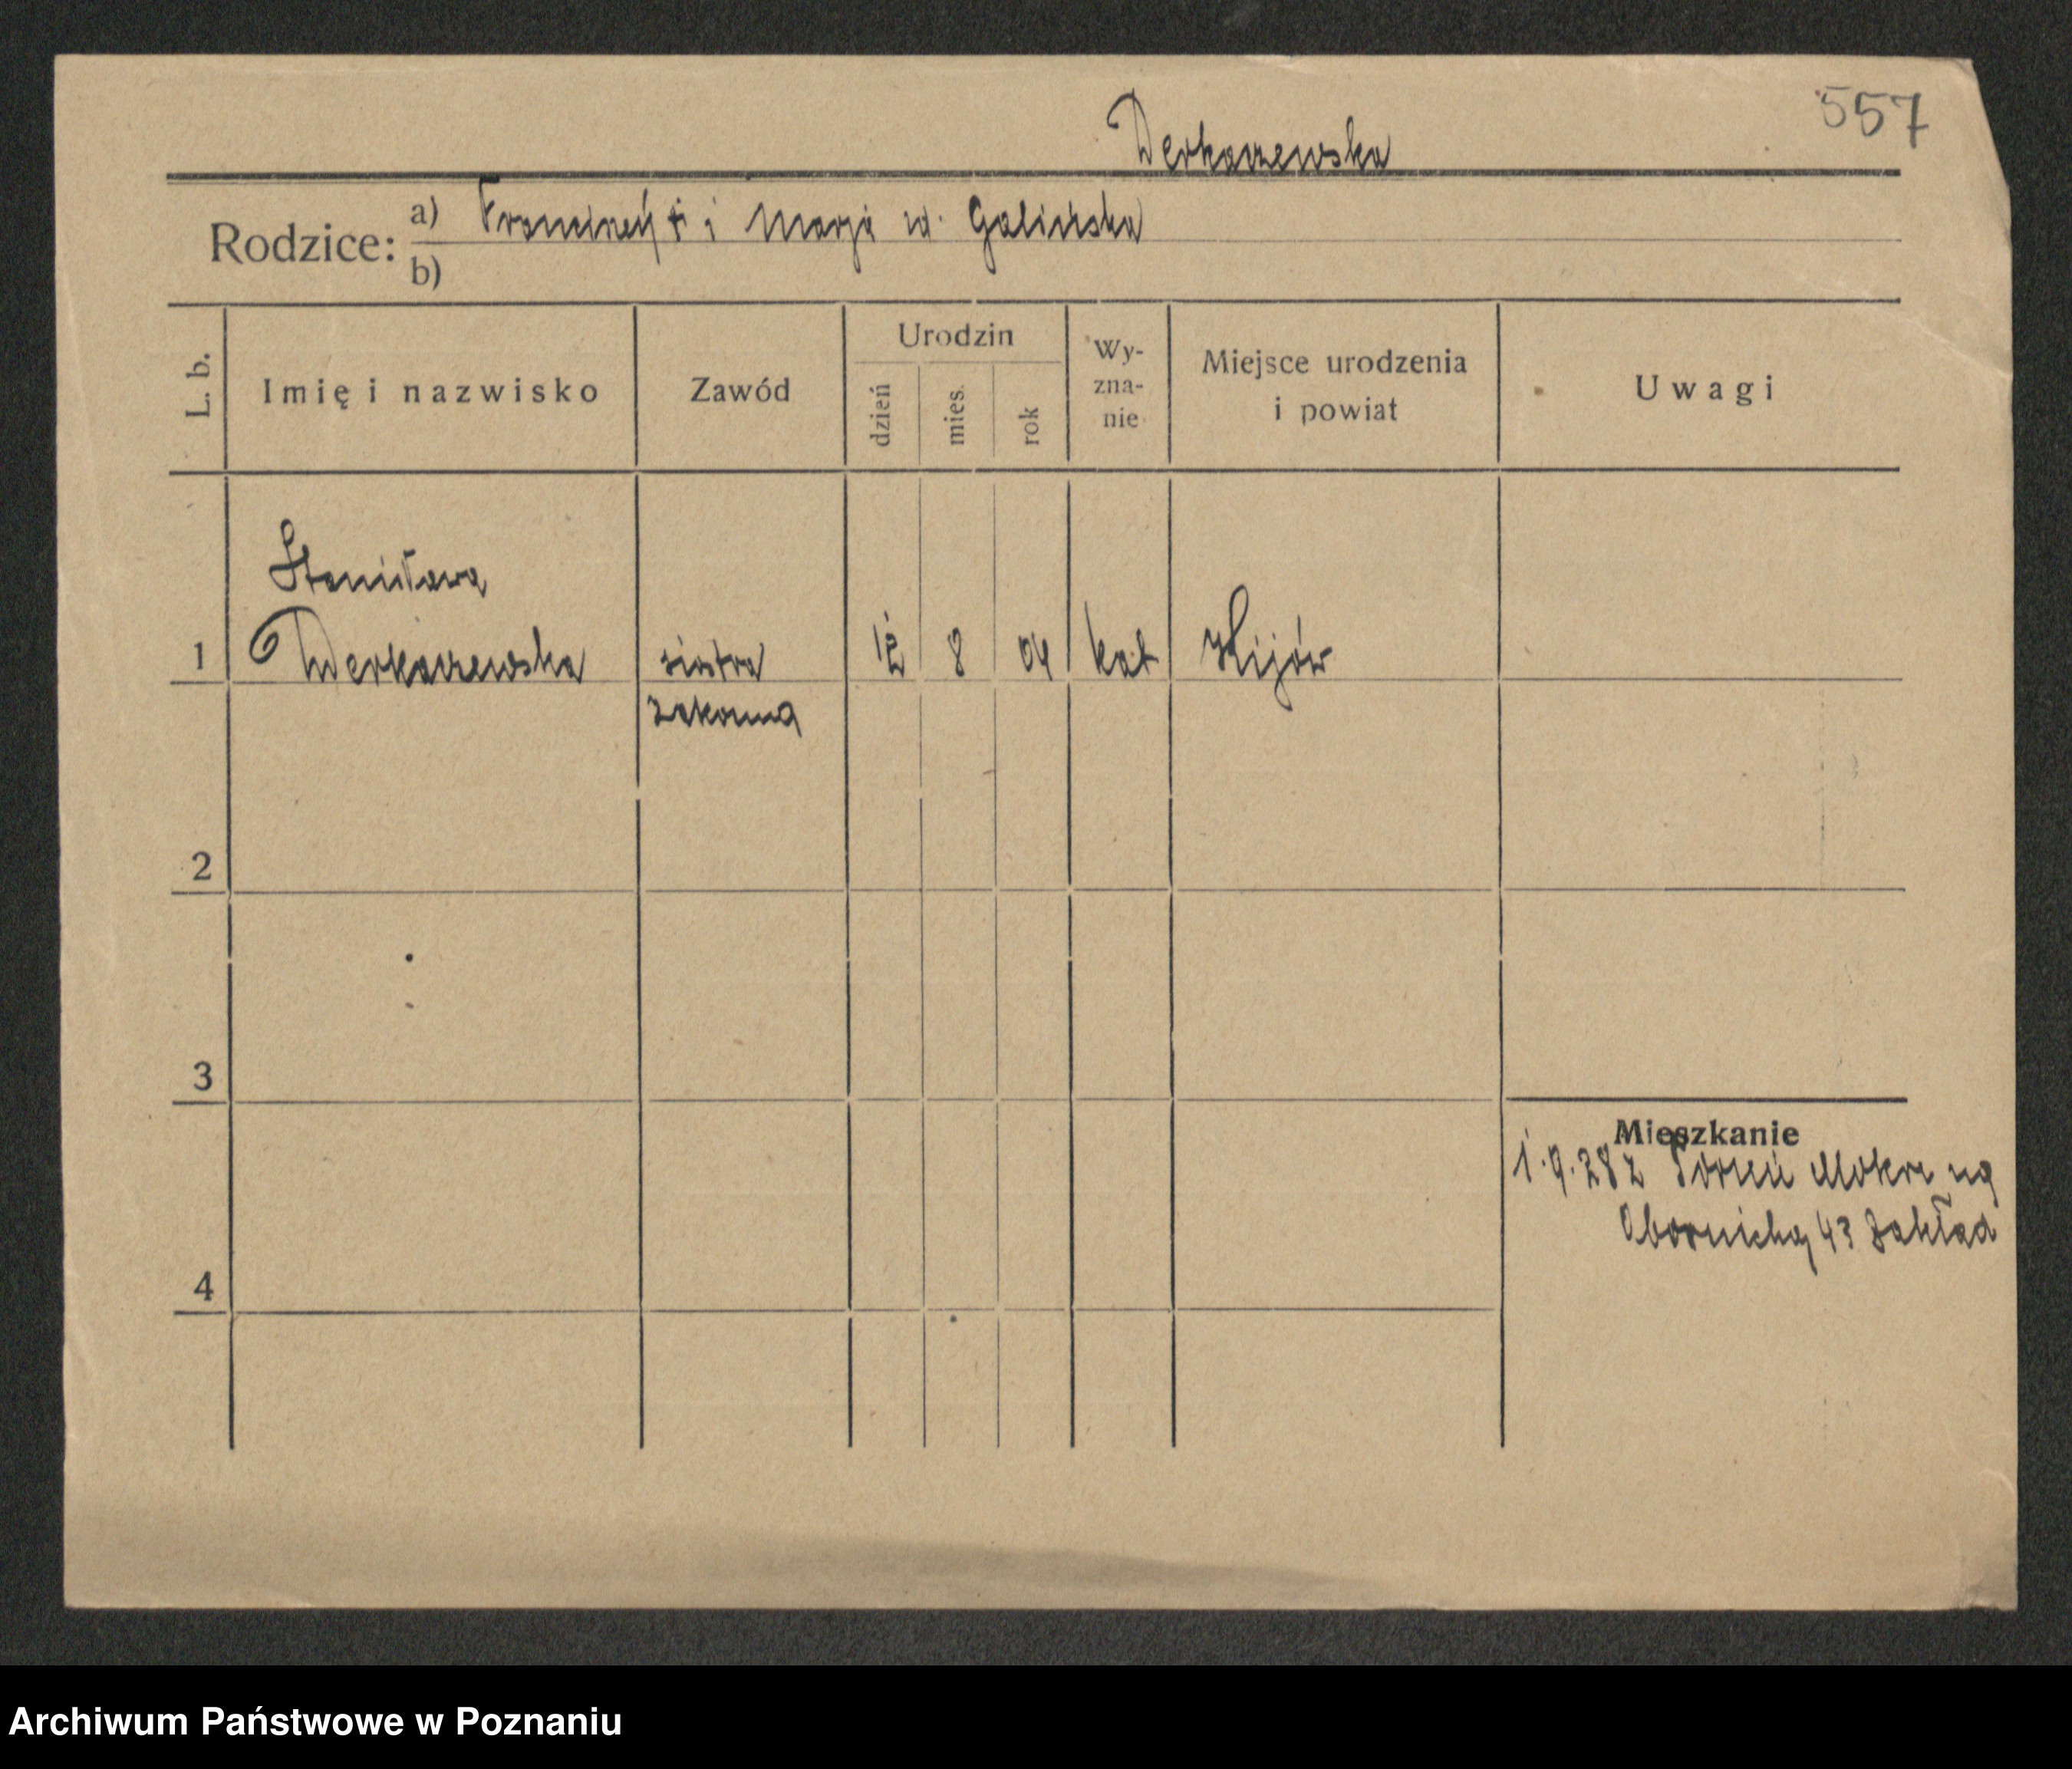 557
Derkaczewska
Rodzice: a) Franciszek † i Marja u. Galińska
b)
L. b. Imię i nazwisko Zawód Urodzin dzień mies. rok Wy-zna-nie Miejsce urodzenia i powiat Uwagi
Stanisława
1 Derkaczewska siostra 12 8 04 kat Kijów
zakonna
2
3
Mieszkanie
1.9.28 z Toruń Mokre na
Obornicką 43 Zakład
4
Archiwum Państwowe w Poznaniu